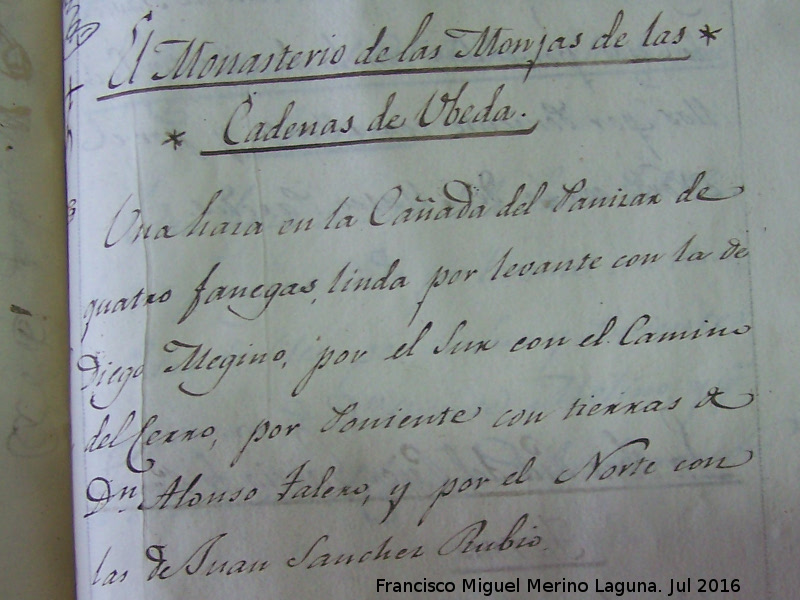 El Monasterio de las Monjas de las *
* Cadenas de Vbeda.
Una haza en la Cañada del Panizar de
quatro fanegas, linda por levante con la de
Diego Megino, por el Sur con el Camino
del Cerro, por Poniente con tierras de
Dn. Alonso Talero, y por el Norte con
las de Juan Sanchez Rubio.
Francisco Miguel Merino Laguna. Jul 2016